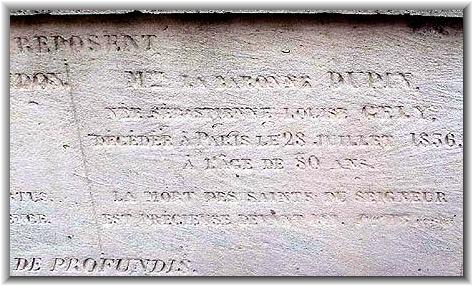 REPOSENT
DON. Mme LA BARONNE DUPIN,
NÉE SÉBASTIENNE-LOUISE GÉLY,
DÉCÉDÉE À PARIS LE 28 JUILLET 1856,
À L'ÂGE DE 80 ANS.
LA MORT DES SAINTS DU SEIGNEUR
EST PRÉCIEUSE DEVANT LUI.
DE PROFUNDIS.